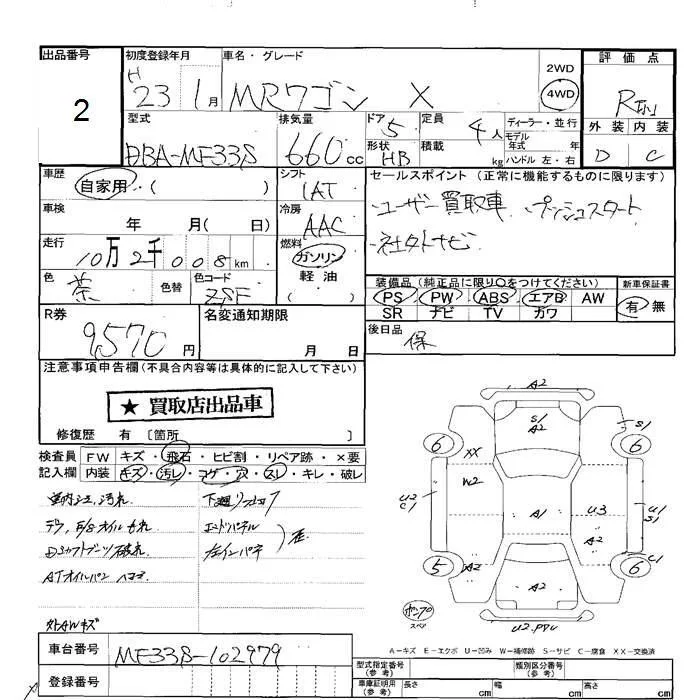 出品番号
2
初度登録年月
H
23 1月
車名・グレード
MRワゴン X
2WD
4WD
評価点
外装 内装
D C
型式
DBA-MF33S
排気量
660cc
ドア 5
定員 4人
ディーラー・並行
形状 HB
積載 kg
モデル
年式 年
ハンドル 左・右
車歴
自家用・( )
シフト
IAT
セールスポイント (正常に機能するものに限ります)
・ユーザー買取車 ・プッシュスタート
・社外ナビ
車検
年 月( 日)
冷房
AAC
走行
10万2千008km
燃料
ガソリン
軽油
( )
色
茶
色替
色コード
ZSF
装備品 (純正品に限り○をつけてください)
PS・PW・ABS・エアB・AW
SR・ナビ・TV・カワ
新車保証書
有・無
R券
9,570円
名変通知期限
月 日
後日品
保
注意事項申告欄(不具合内容等は具体的に記入して下さい)
★ 買取店出品車
修復歴 有 〔箇所 〕
検査員
記入欄
FW キズ・飛石・ヒビ割・リペア跡・×要
内装 キズ・汚レ・コゲ・穴・スレ・キレ・破レ
下廻り
エンドパネル
Dシャフトブーツ破れ
ATオイルパン ヘコミ
外AWキズ
A2
S1
A2
6
6
XX
W2
U2
C1
A1
U3
A2
U1
S1
5
A2
A2
C1
6
A－キズ E－エクボ U－凹み W－補修跡 S－サビ C－腐食 XX－交換済
車台番号
MF33S-102979
登録番号
型式指定番号
(参考)
類別区分番号
(参考)
車庫証明用
(参考)
長さ cm
幅 cm
高さ cm